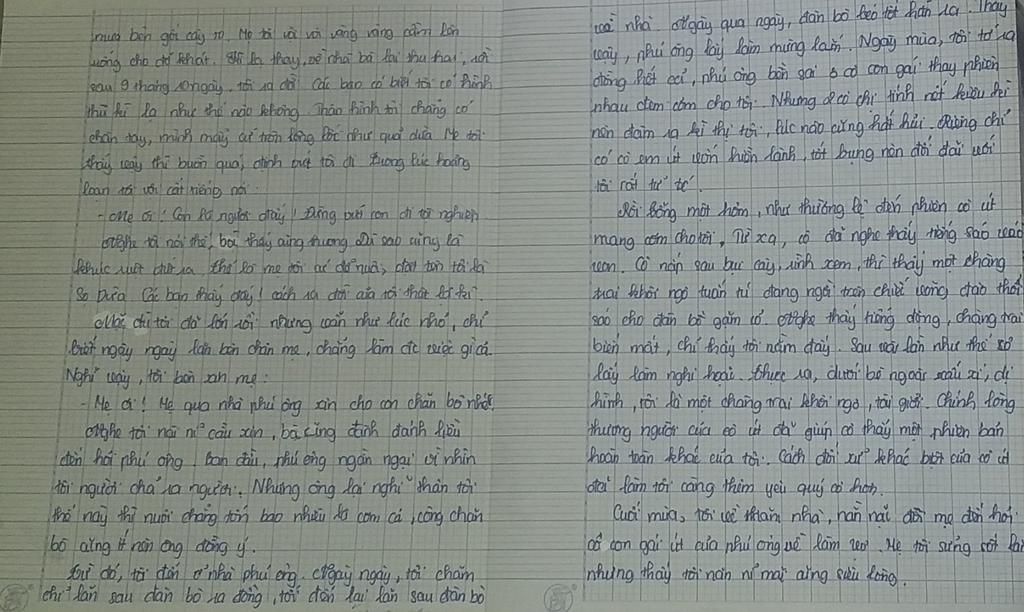 mưa bên gốc cây to. Mẹ tôi vội vội vàng vàng cầm lên
uống cho đỡ khát. lạ thay, về nhà bà lại thụ thai, rồi
sau 9 tháng 10 ngày, tôi ra đời. Các bạn có biết tôi có hình
thù kì lạ như thế nào không. Thân hình tôi chẳng có
chân tay, mình mẩy cứ tròn lông lốc như quả dừa. Mẹ tôi
thấy vậy thì buồn quá, định vứt tôi đi. Trong lúc hoảng
loạn tôi vội cất tiếng nói:
- Mẹ ơi! Con là người đấy! Đừng vứt con đi tội nghiệp
Nghe tôi nói thế, bà thấy cũng thương. Dù sao cũng là
khúc ruột đẻ ra, thế là mẹ tôi để nuôi, đặt tên tôi là
Sọ Dừa. Các bạn thấy đấy! cách ra đời của tôi thật kì lạ.
Mặc dù tôi đã lớn rồi nhưng vẫn như lúc nhỏ, chỉ
biết ngày ngày lăn bên chân mẹ, chẳng làm đc việc gì cả.
Nghĩ vậy, tôi bèn xin mẹ:
- Mẹ ơi! Mẹ qua nhà phú ông xin cho con chăn bò nhé.
Nghe tôi nài nỉ cầu xin, bà cũng đành đánh liều
đến hỏi phú ông. Ban đầu, phú ông ngần ngại vì nhìn
tôi người chả ra người. Nhưng ông lại nghĩ thân tôi
thế này thì nuôi chẳng tốn bao nhiêu là cơm cả, công chăn
bò cũng ít nên ông đồng ý.
Từ đó, tôi đến ở nhà phú ông. Ngày ngày, tôi chăm
chỉ lăn sau đàn bò ra đồng, tối đến lại lăn sau đàn bò
về nhà. Ngày qua ngày, đàn bò béo tốt hẳn ra. Thấy
vậy, phú ông lấy làm mừng lắm. Ngày mùa, tôi tớ ra
đồng hết cả, phú ông bèn sai 3 cô con gái thay phiên
nhau đem cơm cho tôi. Nhưng 2 cô chị tính nết kiêu kì
nên đâm ra kì thị tôi, lúc nào cũng hắt hủi. Riêng chỉ
có cô em út vốn hiền lành, tốt bụng nên đối đãi với
tôi rất tử tế.
Rồi bỗng một hôm, như thường lệ đến phiên cô út
mang cơm cho tôi. Từ xa, cô đã nghe thấy tiếng sáo véo
von. Cô nấp sau bụi cây, rình xem, thì thấy một chàng
trai khôi ngô tuấn tú đang ngồi trên chiếc võng đào thổi
sáo cho đàn bò gặm cỏ. Nghe thấy tiếng động, chàng trai
biến mất, chỉ thấy tôi nằm đấy. Sau vài lần như thế cô
lấy làm nghi hoặc. Thực ra, dưới bộ ngoài xấu xí, dị
hình, tôi là một chàng trai khôi ngô, tài giỏi. Chính lòng
thương người của cô út đã giúp cô thấy một phiên bản
hoàn toàn khác của tôi. Cách đối xử khác biệt của cô út
đã làm tôi càng thêm yêu quý cô hơn.
Cuối mùa, tôi về thăm nhà, nằn nặc đòi mẹ đến hỏi
cô con gái út của phú ông về làm vợ. Mẹ tôi sửng sốt lắm
nhưng thấy tôi năn nỉ mãi cũng xiêu lòng.